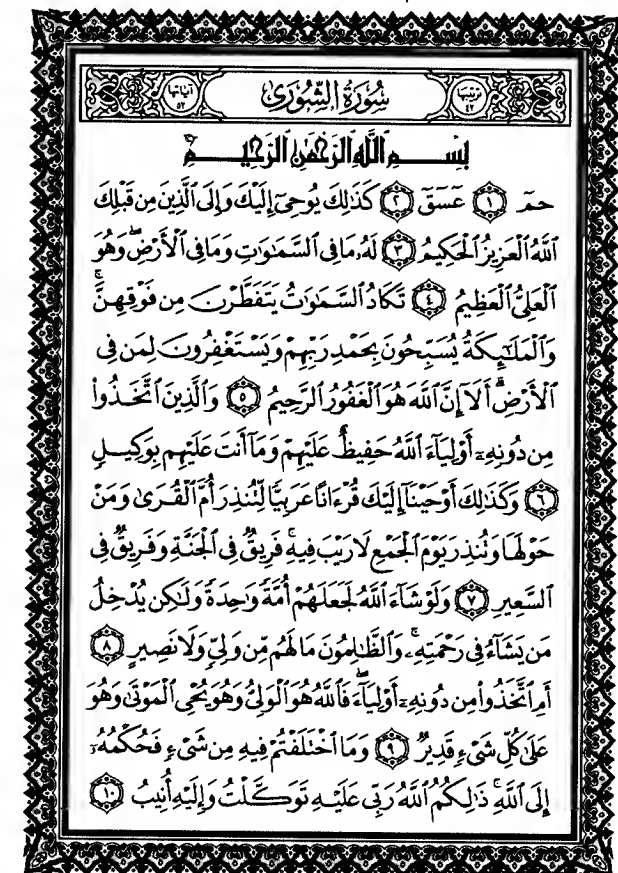 ترتيبها ٤٢
سُورَةُ الشُّورَىٰ
آياتها ٥٣
بِسْمِ ٱللَّهِ ٱلرَّحْمَٰنِ ٱلرَّحِيمِ
حمٓ ١ عٓسٓقٓ ٢ كَذَٰلِكَ يُوحِىٓ إِلَيْكَ وَإِلَى ٱلَّذِينَ مِن قَبْلِكَ
ٱللَّهُ ٱلْعَزِيزُ ٱلْحَكِيمُ ٣ لَهُۥ مَا فِى ٱلسَّمَٰوَٰتِ وَمَا فِى ٱلْأَرْضِۖ وَهُوَ
ٱلْعَلِىُّ ٱلْعَظِيمُ ٤ تَكَادُ ٱلسَّمَٰوَٰتُ يَتَفَطَّرْنَ مِن فَوْقِهِنَّۚ
وَٱلْمَلَٰٓئِكَةُ يُسَبِّحُونَ بِحَمْدِ رَبِّهِمْ وَيَسْتَغْفِرُونَ لِمَن فِى
ٱلْأَرْضِۗ أَلَآ إِنَّ ٱللَّهَ هُوَ ٱلْغَفُورُ ٱلرَّحِيمُ ٥ وَٱلَّذِينَ ٱتَّخَذُوا۟
مِن دُونِهِۦٓ أَوْلِيَآءَ ٱللَّهُ حَفِيظٌ عَلَيْهِمْ وَمَآ أَنتَ عَلَيْهِم بِوَكِيلٍ
٦ وَكَذَٰلِكَ أَوْحَيْنَآ إِلَيْكَ قُرْءَانًا عَرَبِيًّا لِّتُنذِرَ أُمَّ ٱلْقُرَىٰ وَمَنْ
حَوْلَهَا وَتُنذِرَ يَوْمَ ٱلْجَمْعِ لَا رَيْبَ فِيهِۚ فَرِيقٌ فِى ٱلْجَنَّةِ وَفَرِيقٌ فِى
ٱلسَّعِيرِ ٧ وَلَوْ شَآءَ ٱللَّهُ لَجَعَلَهُمْ أُمَّةً وَٰحِدَةً وَلَٰكِن يُدْخِلُ
مَن يَشَآءُ فِى رَحْمَتِهِۦۚ وَٱلظَّٰلِمُونَ مَا لَهُم مِّن وَلِىٍّ وَلَا نَصِيرٍ ٨
أَمِ ٱتَّخَذُوا۟ مِن دُونِهِۦٓ أَوْلِيَآءَۖ فَٱللَّهُ هُوَ ٱلْوَلِىُّ وَهُوَ يُحْىِ ٱلْمَوْتَىٰ وَهُوَ
عَلَىٰ كُلِّ شَىْءٍ قَدِيرٌ ٩ وَمَا ٱخْتَلَفْتُمْ فِيهِ مِن شَىْءٍ فَحُكْمُهُۥٓ
إِلَى ٱللَّهِۚ ذَٰلِكُمُ ٱللَّهُ رَبِّى عَلَيْهِ تَوَكَّلْتُ وَإِلَيْهِ أُنِيبُ ١٠